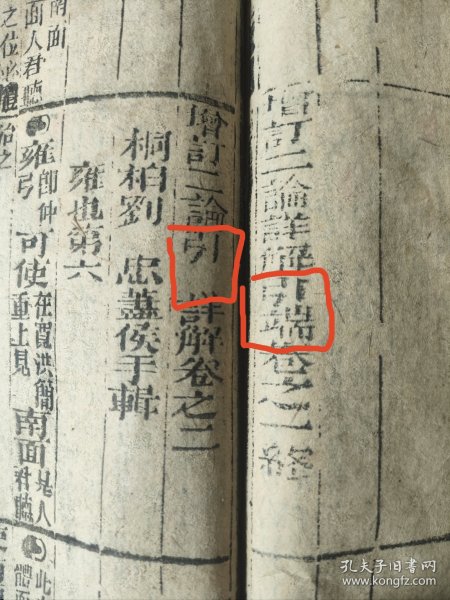 增訂二論詳解引端卷之一終
增訂二論引 詳解卷之二
桐柏劉 忠藎侯手輯
雍也第六
南面
面人君聽
之位
雍即仲弓可使在寬洪簡重上見南面是人君聽
治之
孔夫子旧书网